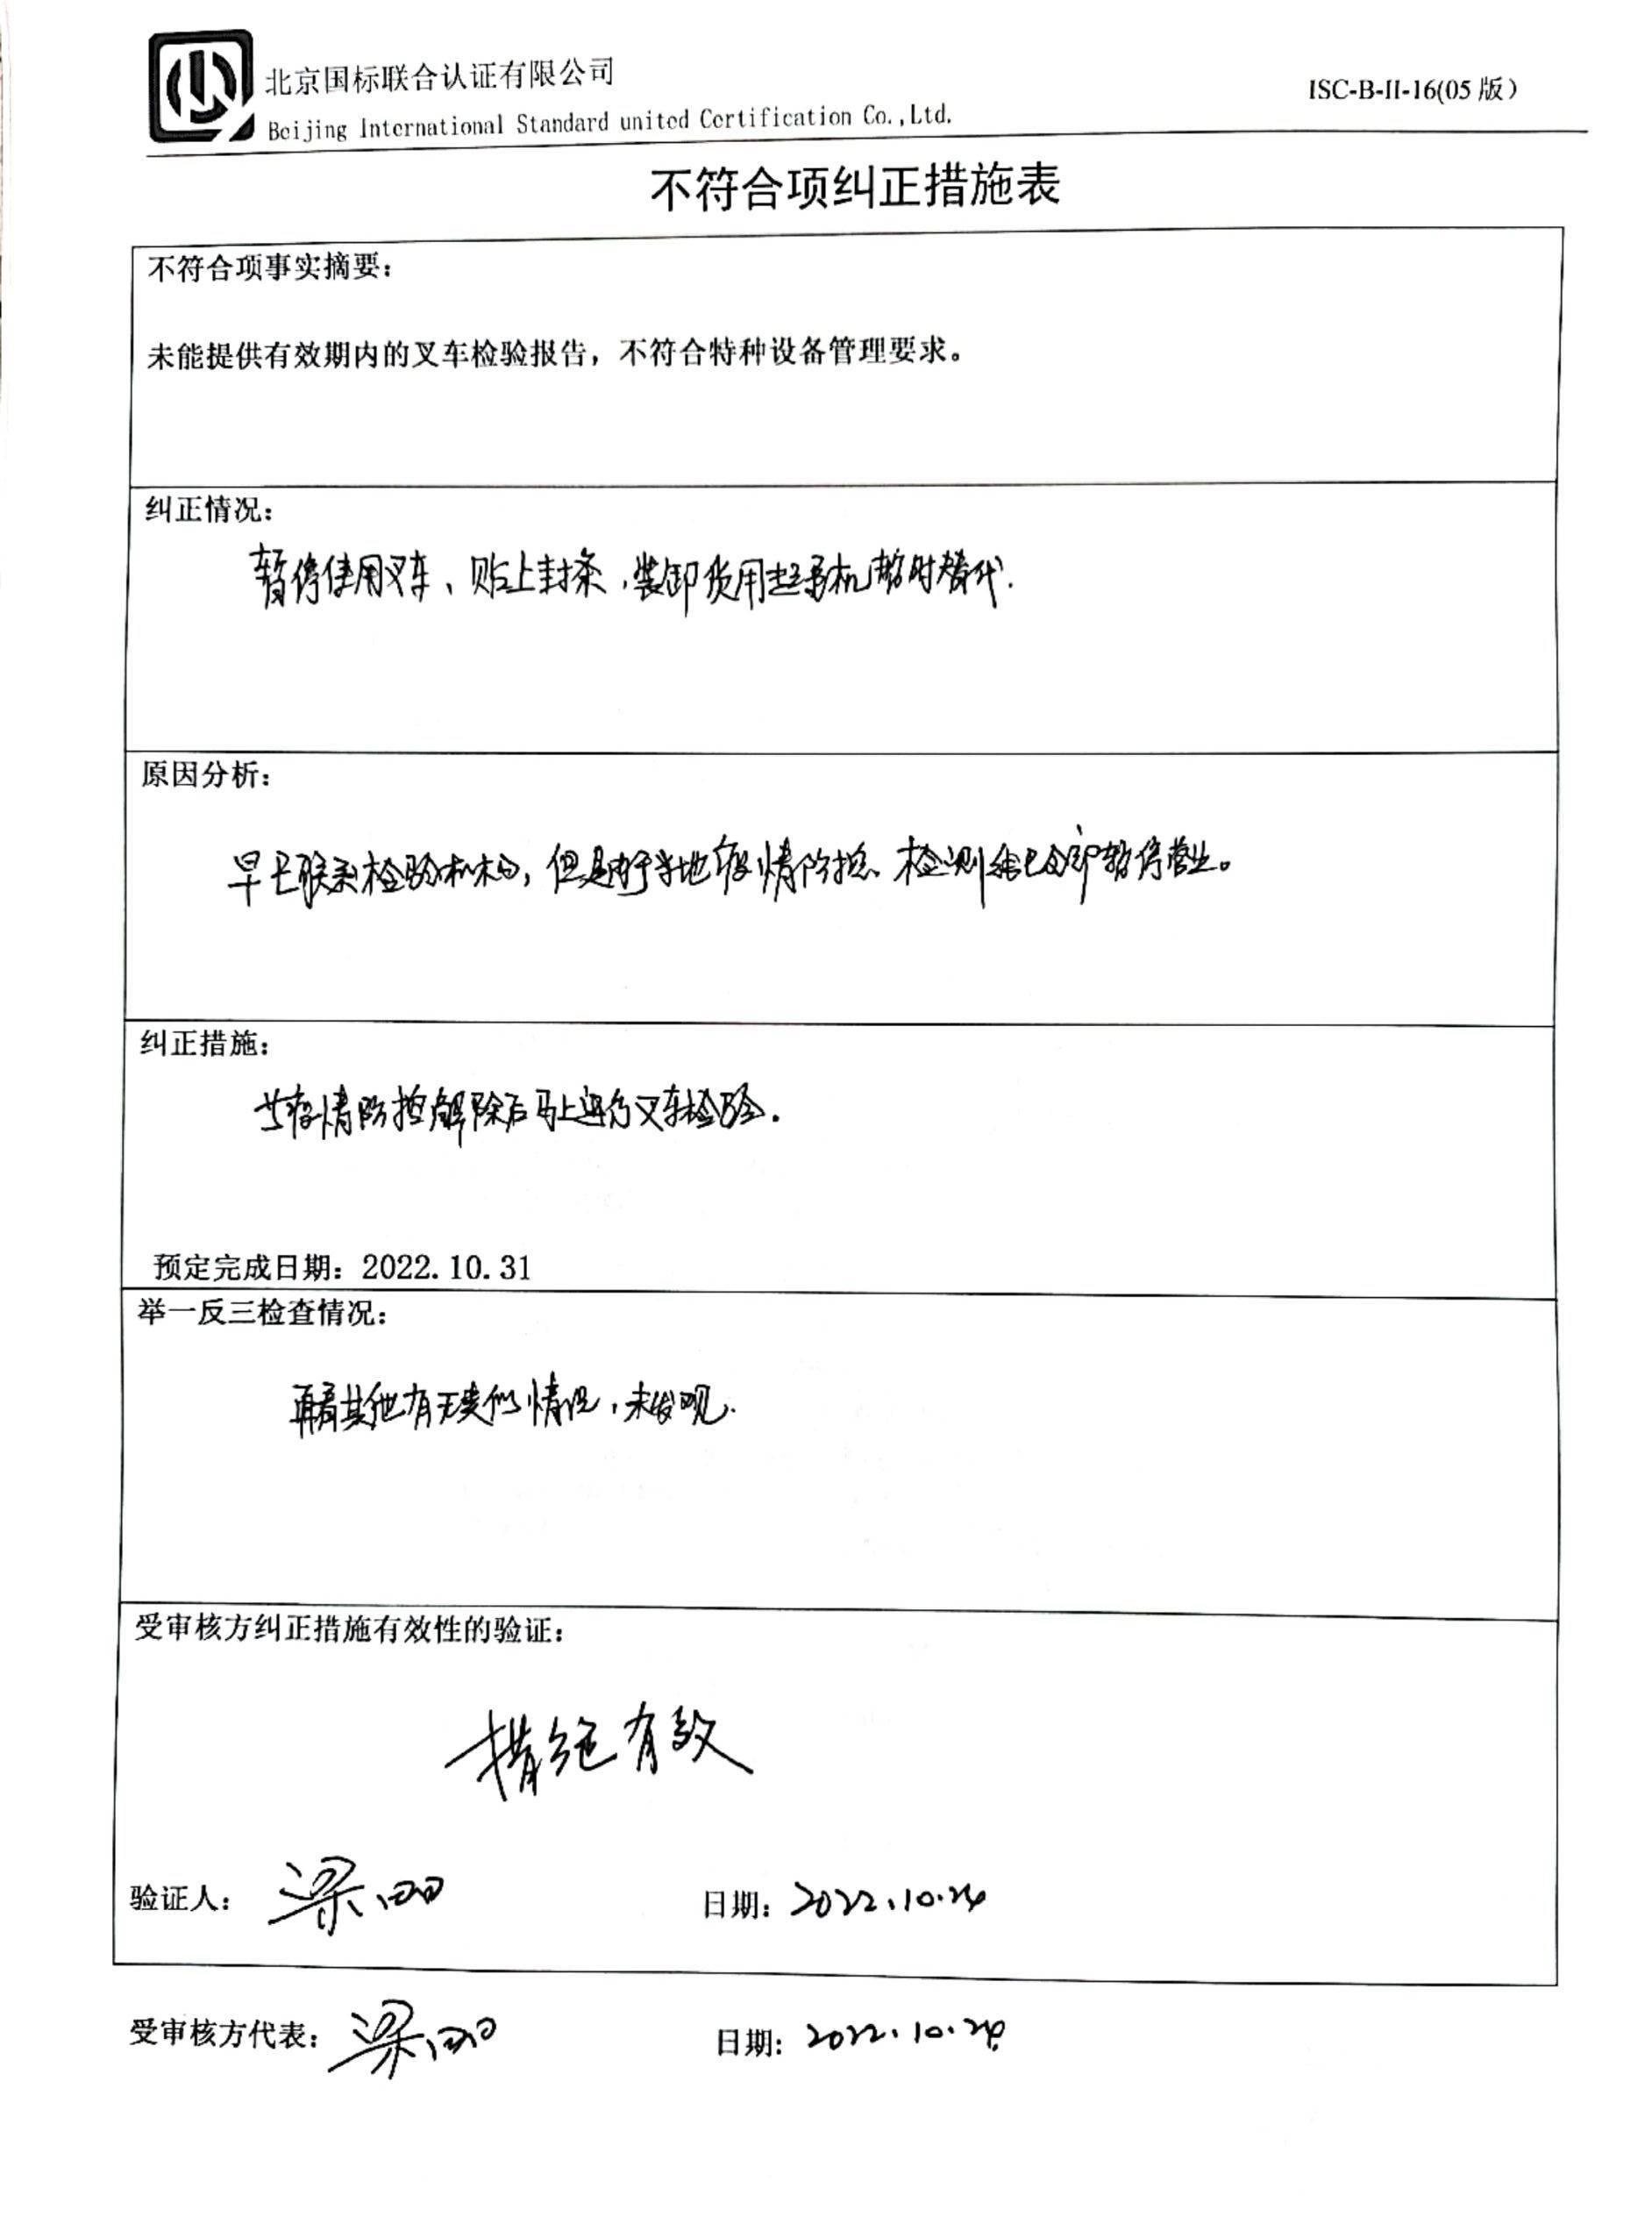 北京国标联合认证有限公司
ISC-B-II-16(05 版)
Beijing International Standard united Certification Co.,Ltd.
不符合项纠正措施表
不符合项事实摘要：
未能提供有效期内的叉车检验报告，不符合特种设备管理要求。
纠正情况：
暂停使用叉车、贴上封条，装卸货用起吊机暂时替代.
原因分析：
早已联系检验机构，但是由于当地疫情防控 检测 已全部暂停营业。
纠正措施：
当疫情防控解除后马上进行叉车检验.
预定完成日期：2022.10.31
举一反三检查情况：
再看其他有无类似情况，未发现.
受审核方纠正措施有效性的验证：
措施有效
验证人： 梁 日期：2022.10.24
受审核方代表：梁 日期：2022.10.24